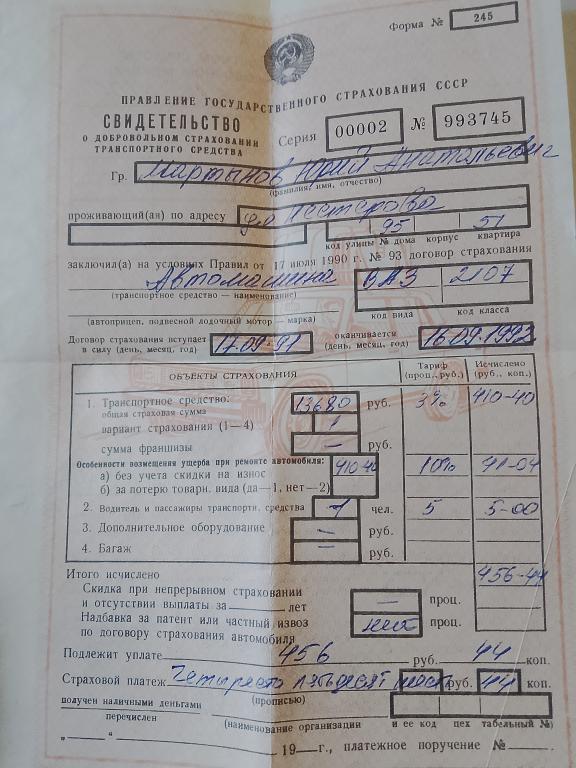 Форма № 245
ПРАВЛЕНИЕ ГОСУДАРСТВЕННОГО СТРАХОВАНИЯ СССР
СВИДЕТЕЛЬСТВО
О ДОБРОВОЛЬНОМ СТРАХОВАНИИ
ТРАНСПОРТНОГО СРЕДСТВА
Серия 00002 № 993745
Гр. Мартынов Юрий Анатольевич
(фамилия, имя, отчество)
проживающий(ая) по адресу ул Нестерова
95 51
код улицы № дома корпус квартира
заключил(а) на условиях Правил от 17 июля 1990 г. № 93 договор страхования
Автомашина ВАЗ 2107
(транспортное средство — наименование) код вида код класса
(автоприцеп, подвесной лодочный мотор — марка)
Договор страхования вступает в силу (день, месяц, год) 17.09.91 оканчивается (день, месяц, год) 16.09.1992
ОБЪЕКТЫ СТРАХОВАНИЯ Тариф (проц., руб.) Исчислено (руб., коп.)
1. Транспортное средство: 13680 руб. 3% 410-40
общая страховая сумма
вариант страхования (1—4) 1
сумма франшизы — руб.
Особенности возмещения ущерба при ремонте автомобиля:
а) без учета скидки на износ 410-40 10% 41-04
б) за потерю товарн. вида (да—1, нет—2)
2. Водитель и пассажиры транспортн. средства 1 чел. 5 5-00
3. Дополнительное оборудование — руб.
4. Багаж — руб.
Итого исчислено 456-44
Скидка при непрерывном страховании
и отсутствии выплаты за лет — проц.
Надбавка за патент или частный извоз
по договору страхования автомобиля проц.
Подлежит уплате 456 руб. 44 коп.
Страховой платеж Четыреста пятьдесят шесть руб. 44 коп.
(прописью)
получен наличными деньгами
перечислен
(наименование организации и ее код цех табельный №)
„ “ 19 г., платежное поручение № .